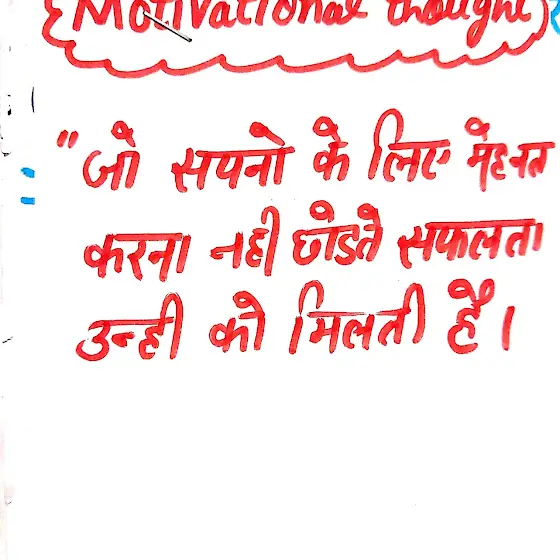 Motivational thought
"जो सपनो के लिए मेहनत
करना नही छोडते सफलता
उन्ही को मिलती है।